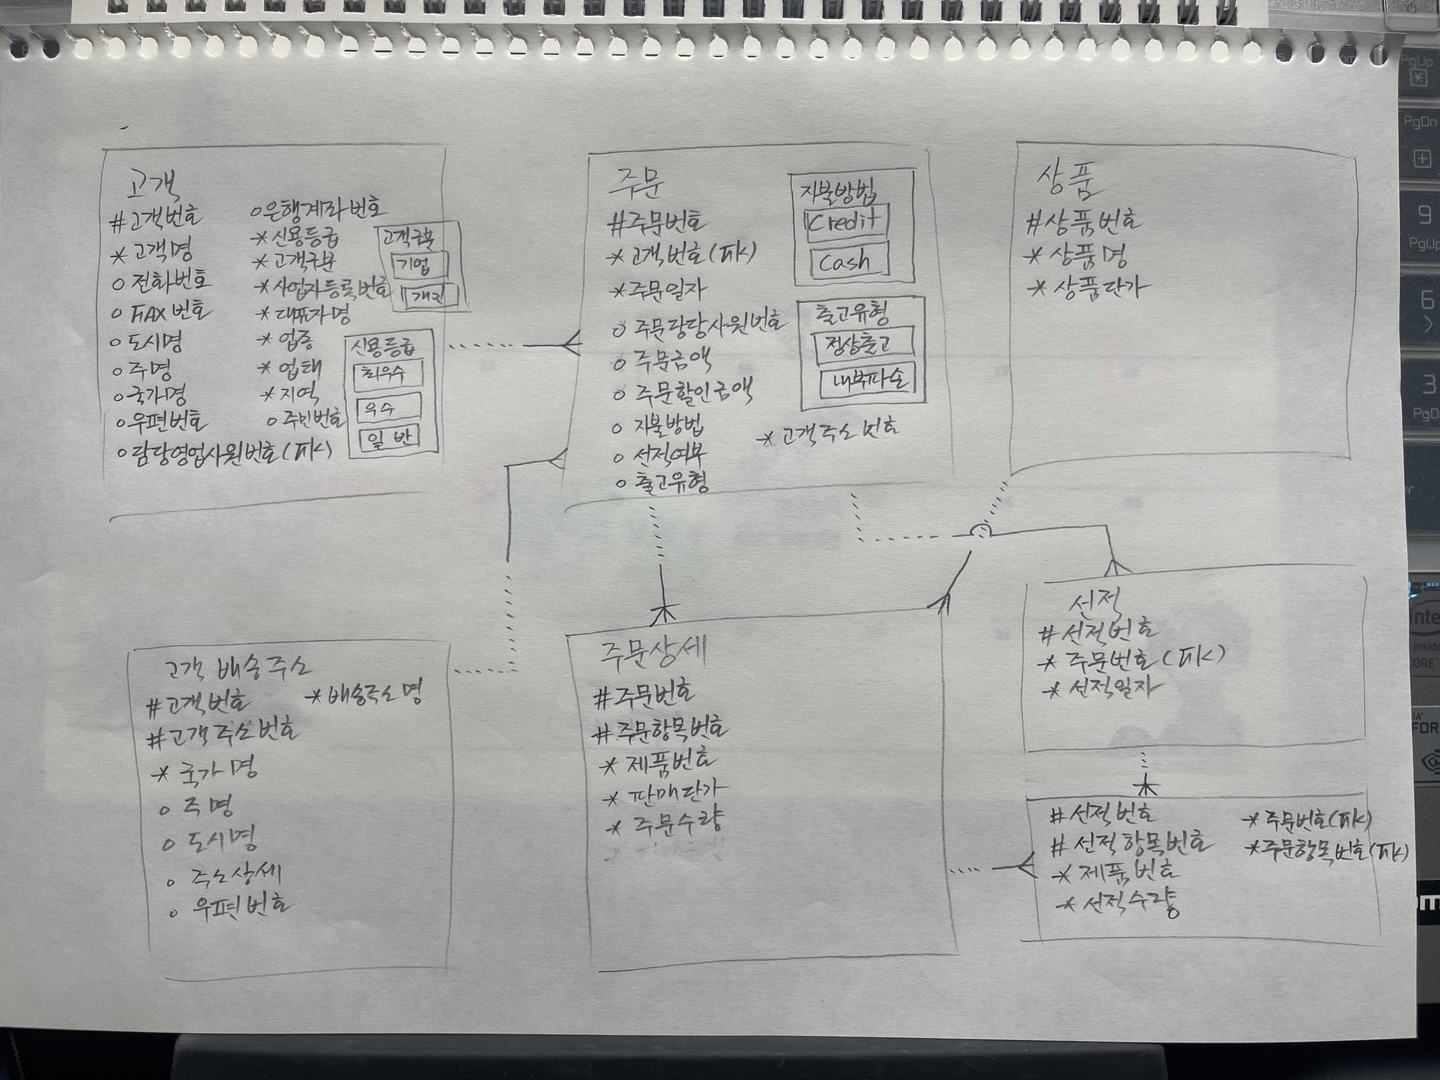 고객
#고객번호
*고객명
o전화번호
oFAX번호
o도시명
o주명
o국가명
o우편번호
o담당영업사원번호(FK)
o은행계좌번호
*신용등급
*고객구분
*사업자등록번호
*대표자명
*업종
*업태
*지역
o주민번호
고객구분
기업
개인
신용등급
최우수
우수
일반
주문
#주문번호
*고객번호(FK)
*주문일자
o주문담당사원번호
o주문금액
o주문할인금액
o지불방법
o선적여부
o출고유형
지불방법
Credit
Cash
출고유형
정상출고
내부파손
*고객주소번호
상품
#상품번호
*상품명
*상품단가
고객 배송주소
#고객번호
#고객주소번호
*국가명
o주명
o도시명
o주소상세
o우편번호
*배송주소명
주문상세
#주문번호
#주문항목번호
*제품번호
*판매단가
*주문수량
선적
#선적번호
*주문번호(FK)
*선적일자
#선적번호
#선적항목번호
*제품번호
*선적수량
*주문번호(FK)
*주문항목번호(FK)
PgUp
PgDn
9
PgUp
6
3
PgD